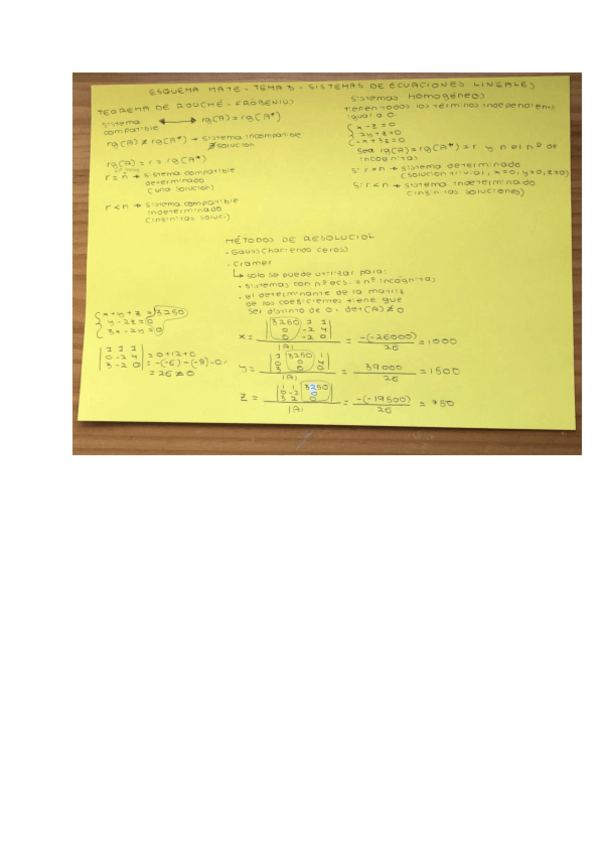 ESQUEMA MATE - TEMA 3 - SISTEMAS DE ECUACIONES LINEALES
TEOREMA DE ROUCHÉ - FROGENIUS
sistema compatible ⟷ rg(A) = rg(A*)
rg(A) ≠ rg(A*) → sistema incompatible
∄ solución
rg(A) = r = rg(A*)
r = n → sistema compatible
determinado
(una solución)
r < n → sistema compatible
indeterminado
(infinitas soluci)
Sistemas Homogéneos
tienen todos los términos independientes
igual a 0.
x - z = 0
2y + z = 0
-x + 3z = 0
Sea rg(A) = rg(A*) = r y n el nº de
incognitas
Si r = n → sistema determinado
(solución trivial, x=0, y=0, z=0)
Si r < n → sistema indeterminado
(infinitas soluciones)
MÉTODOS DE RESOLUCIOL
- Gauss (haciendo ceros)
- Cramer
↳ solo se puede utilizar para:
• sistemas con nº ecs. = nº incógnitas
• el determinante de la matriz
de los coeficientes tiene que
ser distinto de 0. det(A) ≠ 0
x + y + z = 3250
y - 2z = 0
3x - 2y = 0
|1 1 1|
|0 -2 4| = 0+12+0
|3 -2 0| = -(-6)-(-8)-0 =
= 26 ≠ 0
x = |3250 1 1|
|0 -2 4|
|0 -2 0|
|A|
= -(-26000) / 26 = 1000
y = |1 3250 1|
|0 0 4|
|3 0 0|
|A|
= 39000 / 26 = 1500
z = |1 1 3250|
|0 -2 0|
|3 2 0|
|A|
= -(-19500) / 26 = 750